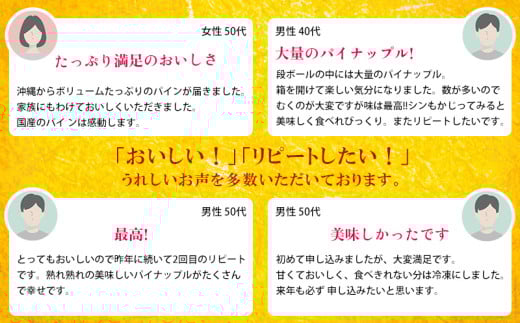 女性 50代
たっぷり満足のおいしさ
沖縄からボリュームたっぷりのパインが届きました。
家族にもわけておいしくいただきました。
国産のパインは感動します。
男性 40代
大量のパイナップル!
段ボールの中には大量のパイナップル。
箱を開けて楽しい気分になりました。数が多いので
むくのが大変ですが味は最高!!シンもかじってみると
美味しく食べれびっくり。またリピートしたいです。
「おいしい！」「リピートしたい！」
うれしいお声を多数いただいております。
男性 50代
最高!
とってもおいしいので昨年に続いて2回目のリピート
です。熟れ熟れの美味しいパイナップルがたくさん
で幸せです。
男性 50代
美味しかったです
初めて申し込みましたが、大変満足です。
甘くておいしく、食べきれない分は冷凍にしました。
来年も必ず 申し込みたいと思います。